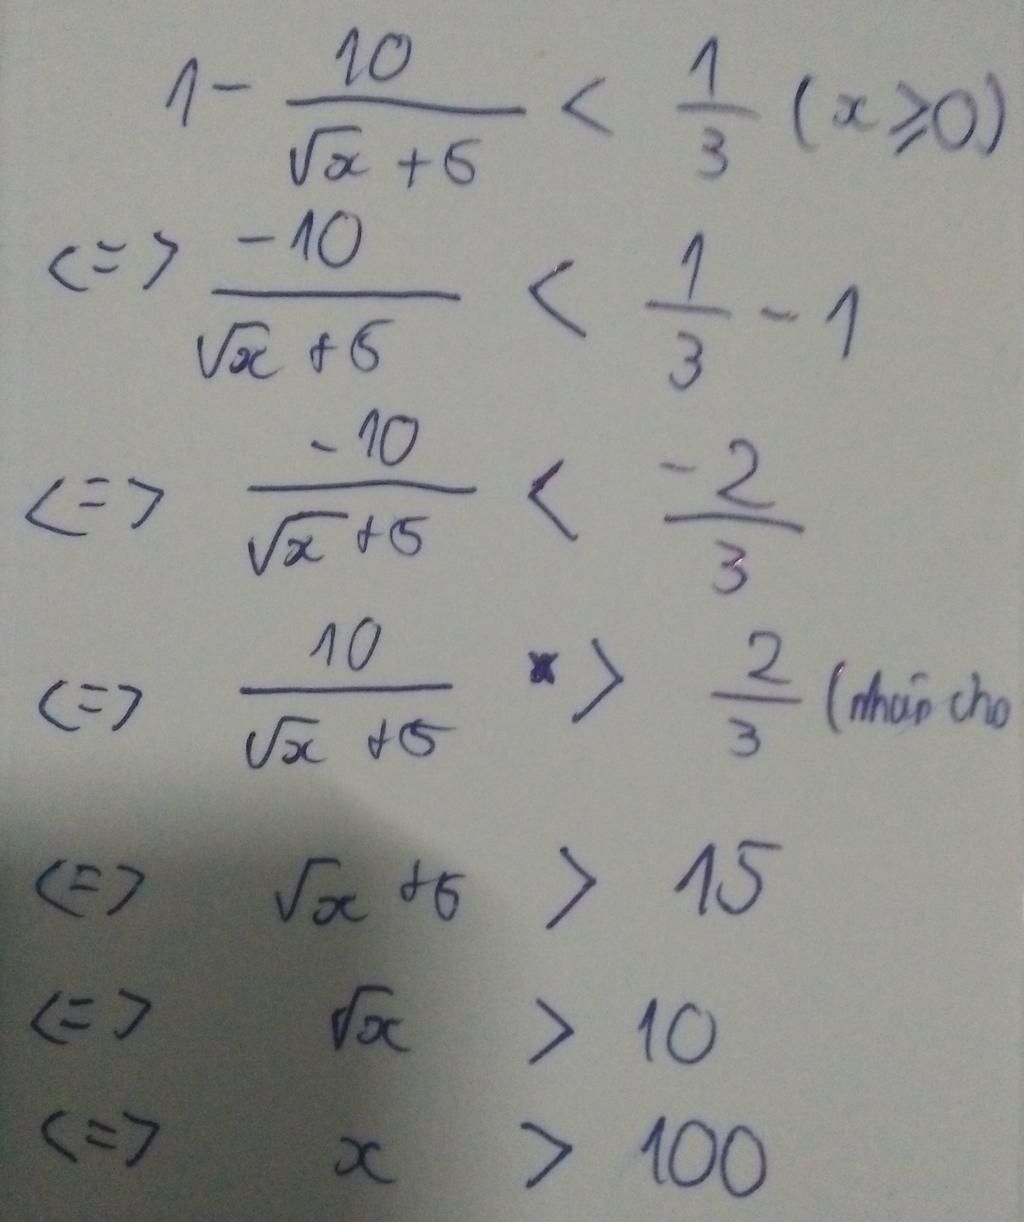 1 - 10/(√x + 5) < 1/3 (x ⩾ 0)
<=> -10/(√x + 5) < 1/3 - 1
<=> -10/(√x + 5) < -2/3
<=> 10/(√x + 5) > 2/3 (nhân cho
<=> √x + 5 > 15
<=> √x > 10
<=> x > 100